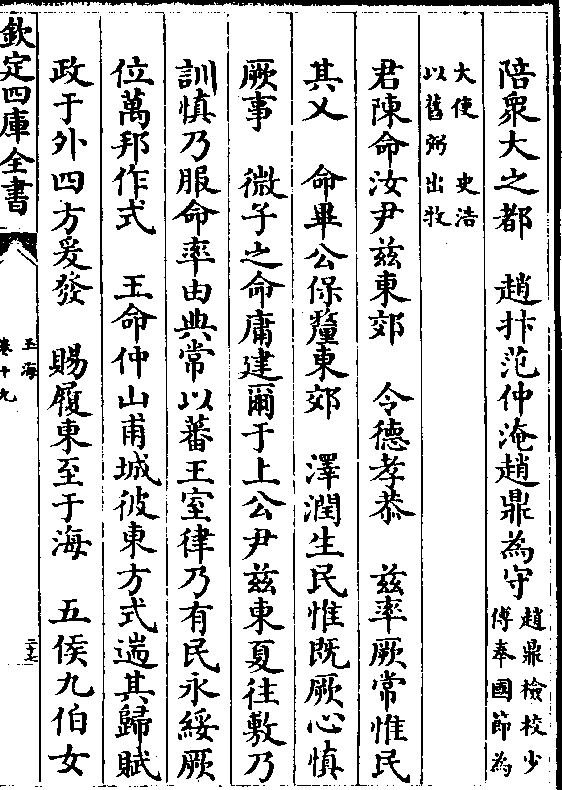 陪衆大之都　趙抃范仲淹趙鼎為守趙鼎檢校少傅奉國節為
大使　史浩以舊弼出牧
君陳命汝尹兹東郊　令德孝恭　兹率厥常惟民
其乂　命畢公保釐東郊　澤潤生民惟既厥心慎
厥事　微子之命庸建爾于上公尹兹東夏往敷乃
訓慎乃服命率由典常以蕃王室律乃有民永綏厥
位萬邦作式　王命仲山甫城彼東方式遄其歸賦
政于外四方爰發　賜履東至于海　五侯九伯女
欽定四庫全書
玉海
卷十九
二十七